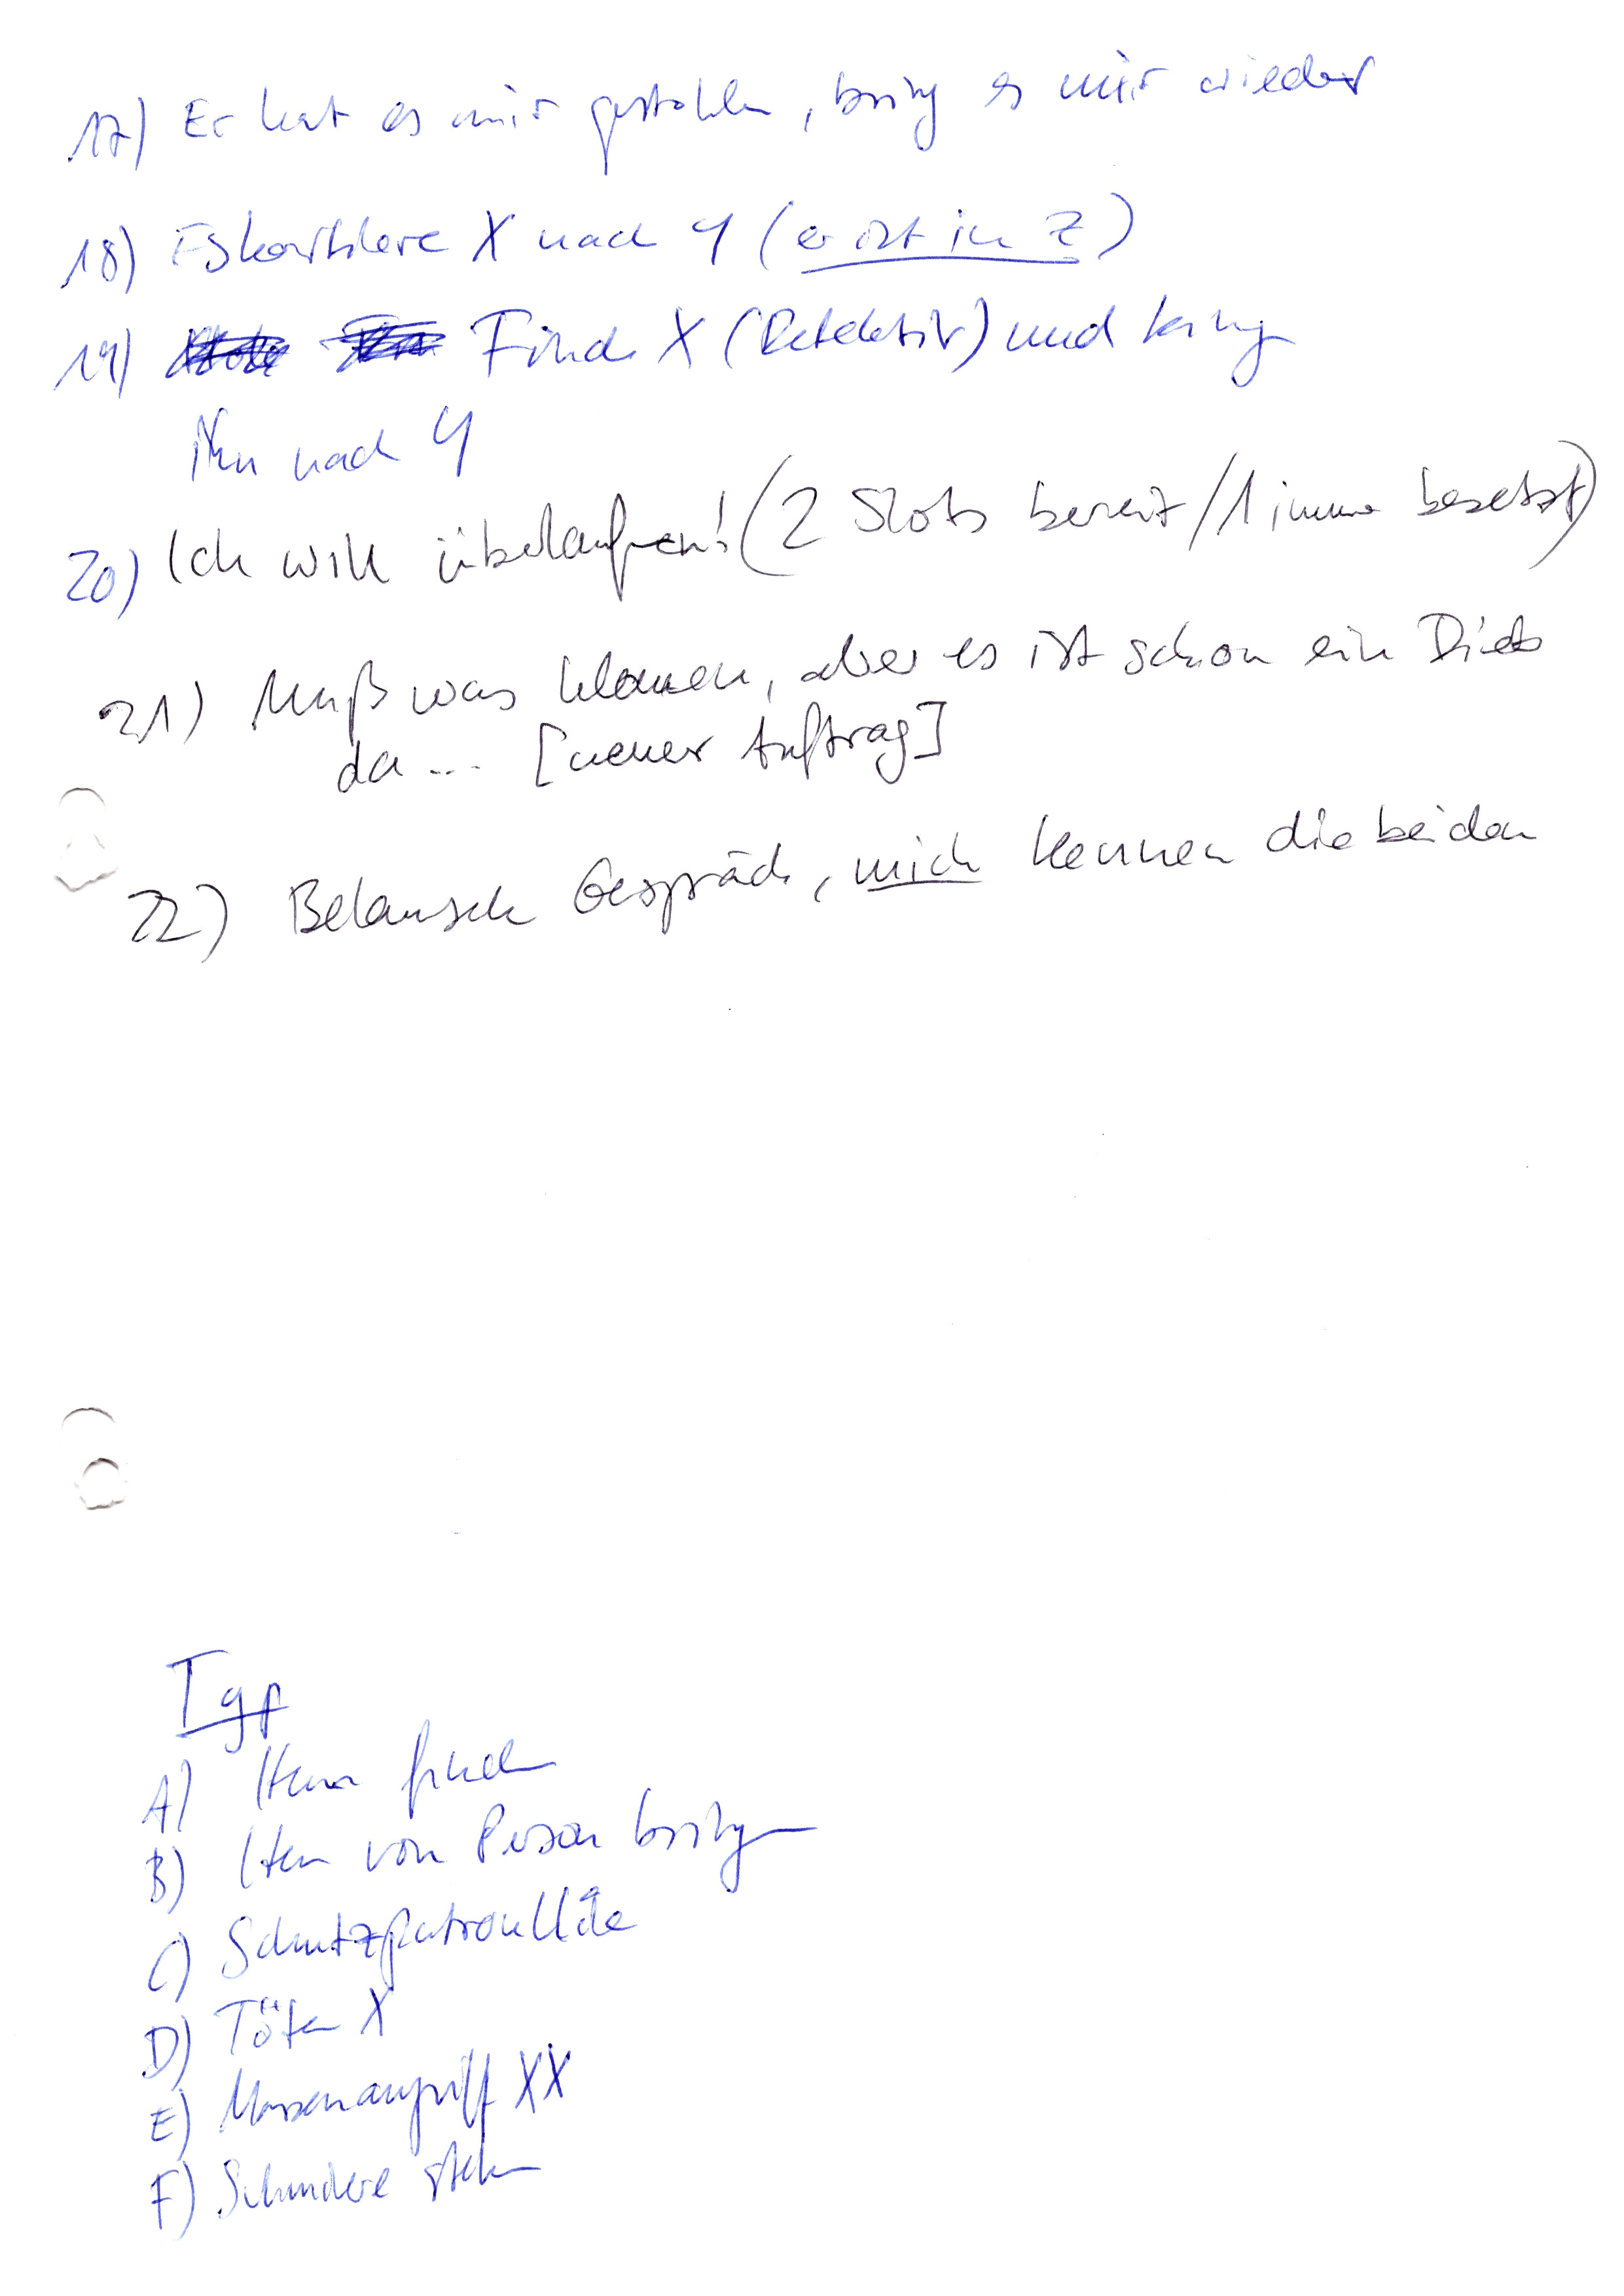 17) Er hat es mir gestohlen, bring es mir wieder
18) Eskortiere X nach Y (er ist in Z)
19) Finde X (Detektiv) und bring
ihn nach Y
20) Ich will überlaufen! (2 Slots bereit / 1 immer besetzt)
21) Muß was klauen, aber es ist schon ein Dieb
da ... [neuer Auftrag]
22) Belausche Gespräch, mich kennen die beiden
Typ
A) Item finden
B) Item von Person bringen
C) Schutzpatrouille
D) Töten X
E) Massenangriff XX
F) Schmiere stehen